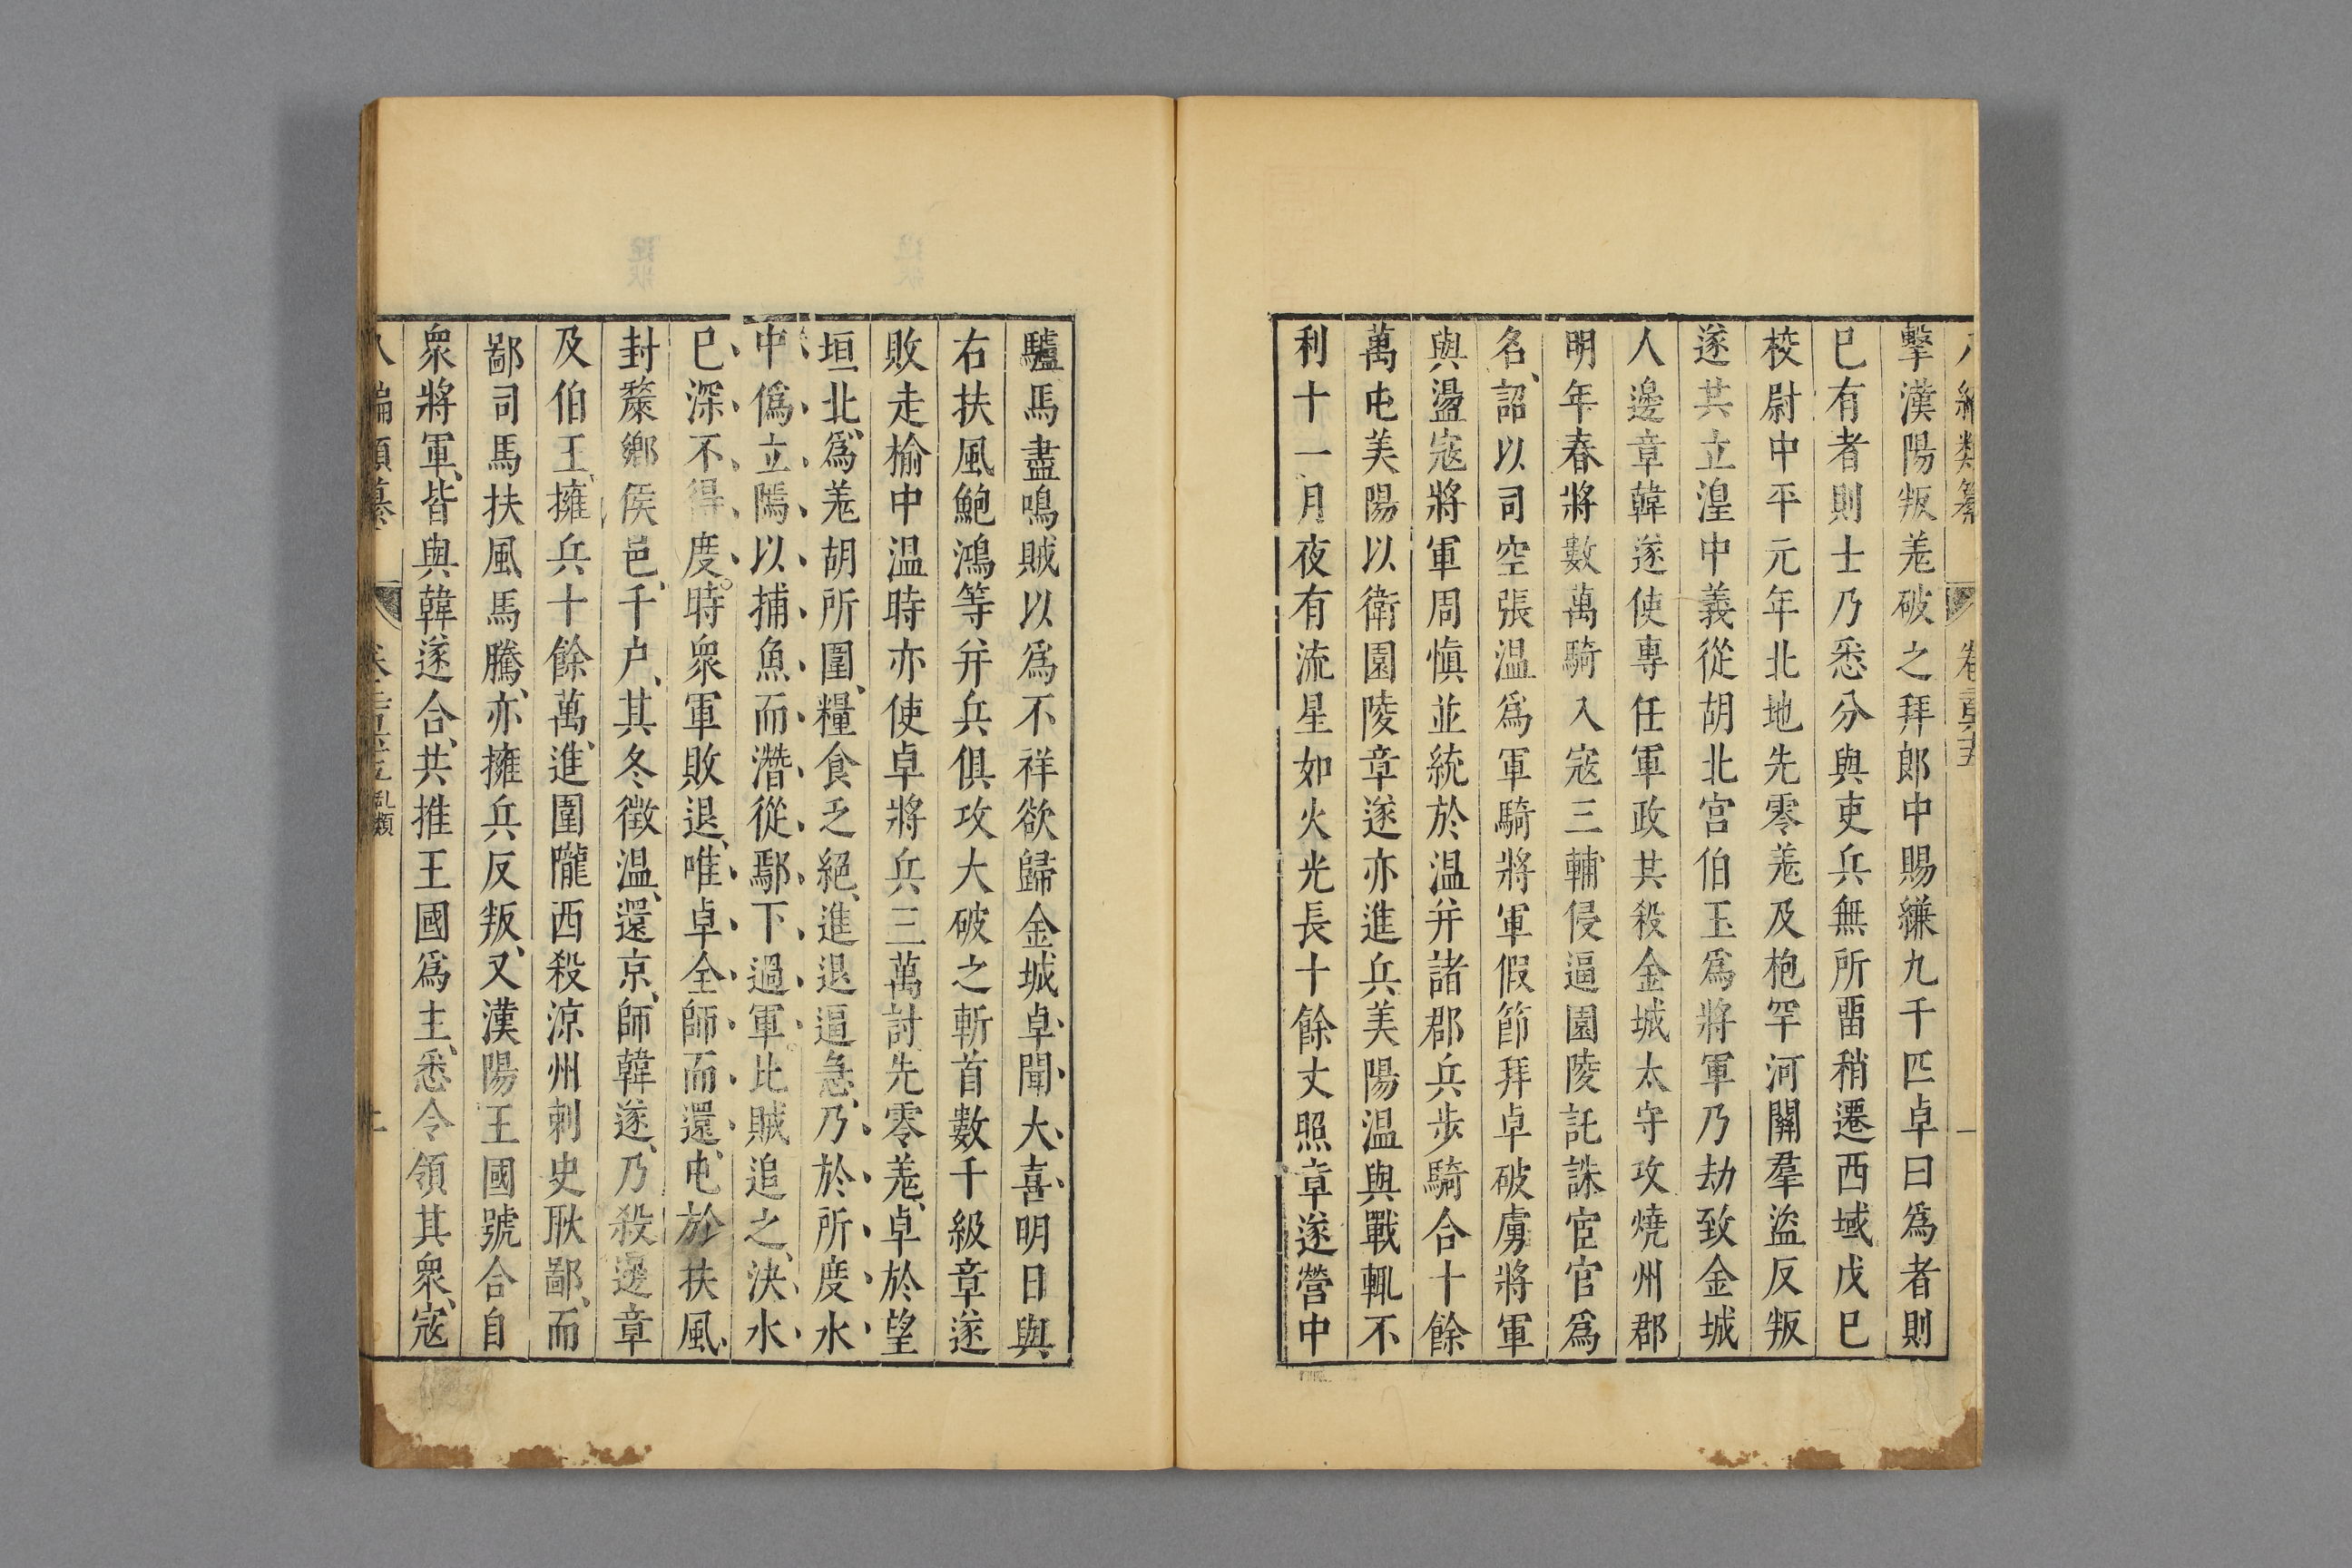 擊漢陽叛羗破之拜郎中賜縑九千匹卓曰爲者則
巳有者則士乃悉分與吏兵無所畱稍遷西域戊巳
校尉中平元年北地先零羗及枹罕河關羣盜反叛
遂共立湟中義從胡北宫伯玉爲將軍乃劫致金城
人邊章韓遂使專任軍政其殺金城太守攻燒州郡
明年春將數萬騎入宼三輔侵逼園陵託誅宦官爲
名、詔以司空張温爲軍騎將軍假節拜卓破虜將軍
與盪宼將軍周愼並統於温并諸郡兵步騎合十餘
萬屯美陽以衛園陵章遂亦進兵美陽温與戰輒不
利十一月夜有流星如火光長十餘丈照章遂營中
驢馬盡鳴賊以爲不祥欲歸金城卓聞大喜明日與
右扶風鮑鴻等并兵俱攻大破之斬首數千級章遂
敗走榆中温時亦使卓將兵三萬討先零羗、卓於望
垣北、爲羗胡所圍、糧食乏絕、進退逼急、乃於所度水
中僞立𨻳以捕魚而潛從鄢下過軍。比賊追之、決水
巳深不得度。時衆軍敗退、唯卓全師而還、屯於扶風、
封斄鄉侯邑、千户、其冬徵温、還京、師韓遂、乃殺邊章
及伯王、擁兵十餘萬、進圍隴西殺涼州刺史耿鄙、而
鄙司馬扶風馬騰、亦擁兵反叛、又漢陽王國號合自
衆將軍、皆與韓遂合、共推王國爲主、悉令領其衆、宼